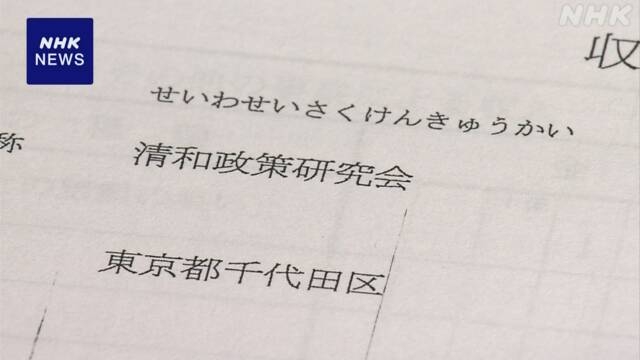 NHK
NEWS
NHK
収
せいわせいさくけんきゅうかい
称
清和政策研究会
東京都千代田区